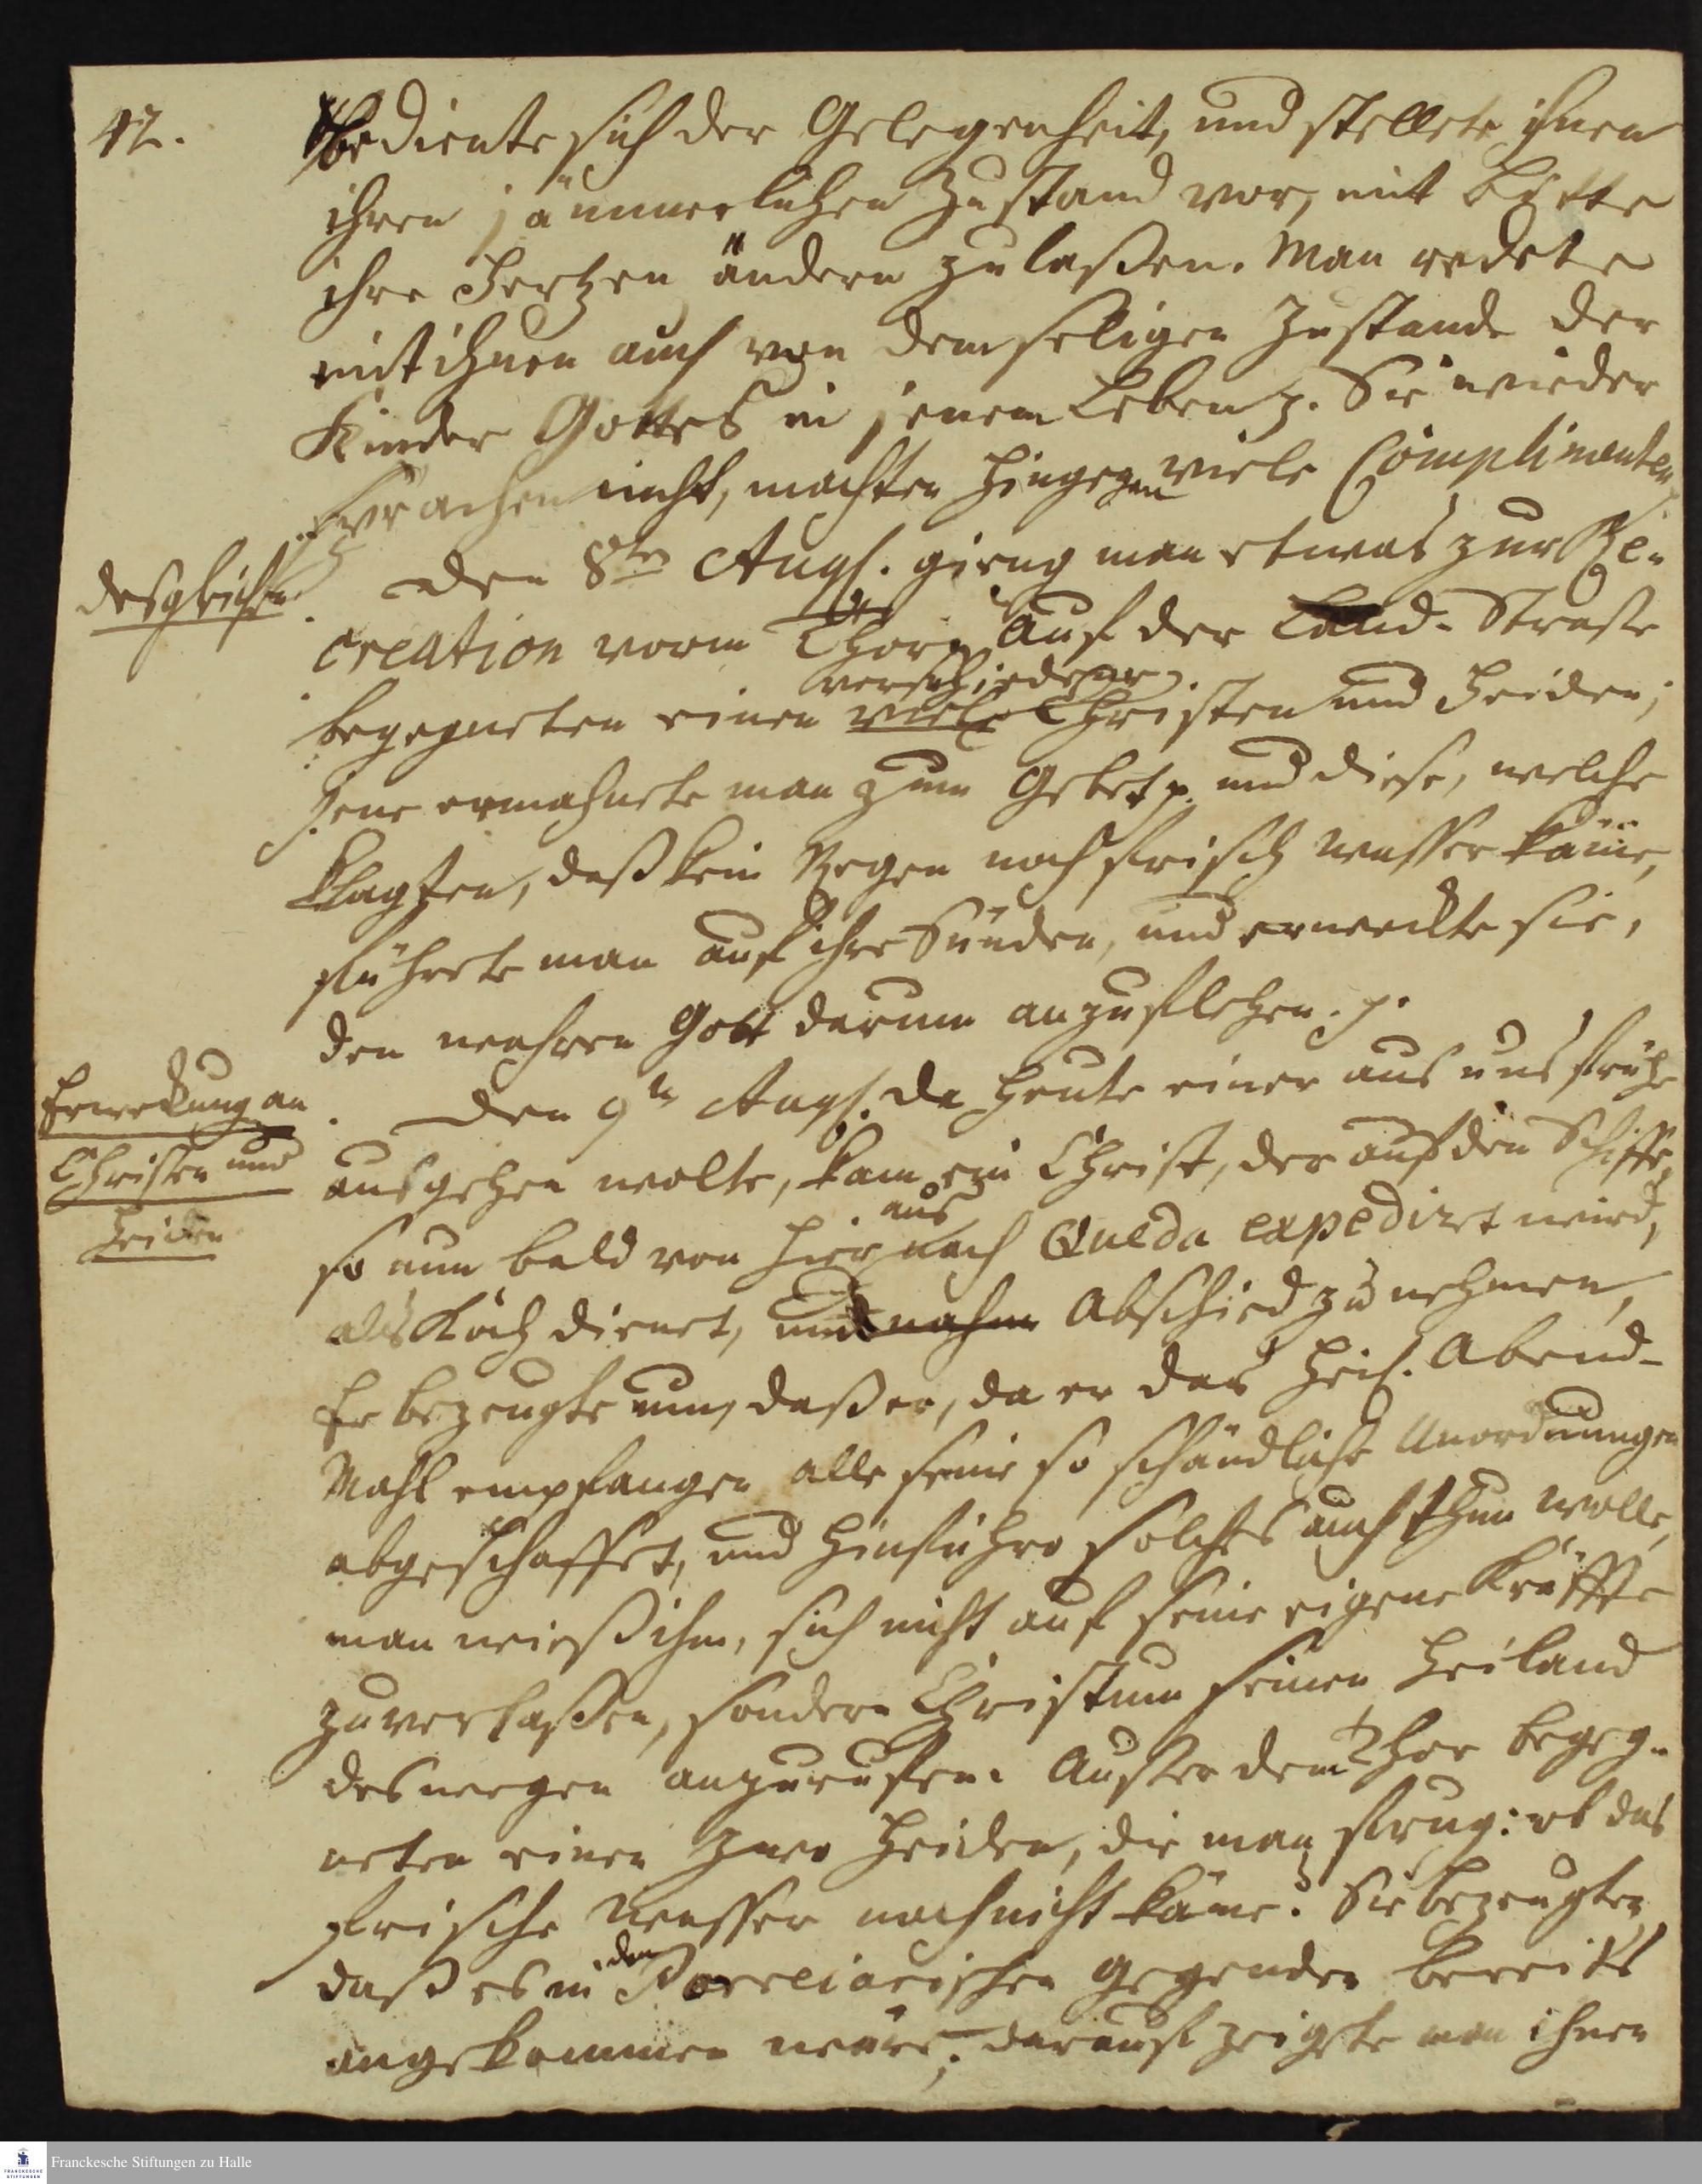 42.
bediente sich der Gelegenheit, und stellete ihnen
ihren jämmerlichen Zustand vor, mit Bitte
ihre Hertzen ändern zu laßen. Man redete
mit ihnen auch von dem seligen Zustande der
Kinder Gottes in jenem Leben p. Sie wieder
sprachen nicht, machten hingegen viele Complimenten
desgleichen
Den 8ten Aug. gieng man etwas zur Re-
creation vorm Thore. Auf der Land-Straße
verschiedene
begegneten einen viele Christen und Heiden;
Jene ermahnete man zum Gebet p. und diese, welche
klagten, daß kein Regen noch frisch Wasser käme,
führete man auf ihre Sünden, und erweckte sie,
den wahren Gott darum anzuflehen. p.
Erweckung an
Christen und
Heiden
Den 9ten Aug. da heute einer aus uns frühe
ausgehen wolte, kam ein Christ, der auf den Schiffe,
aus
so nun bald von hier nach Queda expedirt wird,
als Koch dienet, und nahm Abschied zu nehmen,
Er bezeugte nun, daß er, da er das Heil. Abend-
Mahl empfangen alle seine so schändliche Unordnungen
abgeschaffet, und hinführo solches auch thun wolle,
man wieß ihm, sich nicht auf seine eigene Kräffte
zu verlaßen, sondern Christum seinen Heiland
deswegen anzuruffen. Außer dem Thor begeg-
neten einen zwo Heiden, die man frug: ob das
frische Wasser noch nicht käme? Sie bezeugten
den
daß es in Porreiarischen Gegenden bereits
angekommen wäre; darauf zeigte man ihnen
Franckesche Stiftungen zu Halle
FRANCKESCHE
STIFTUNGEN